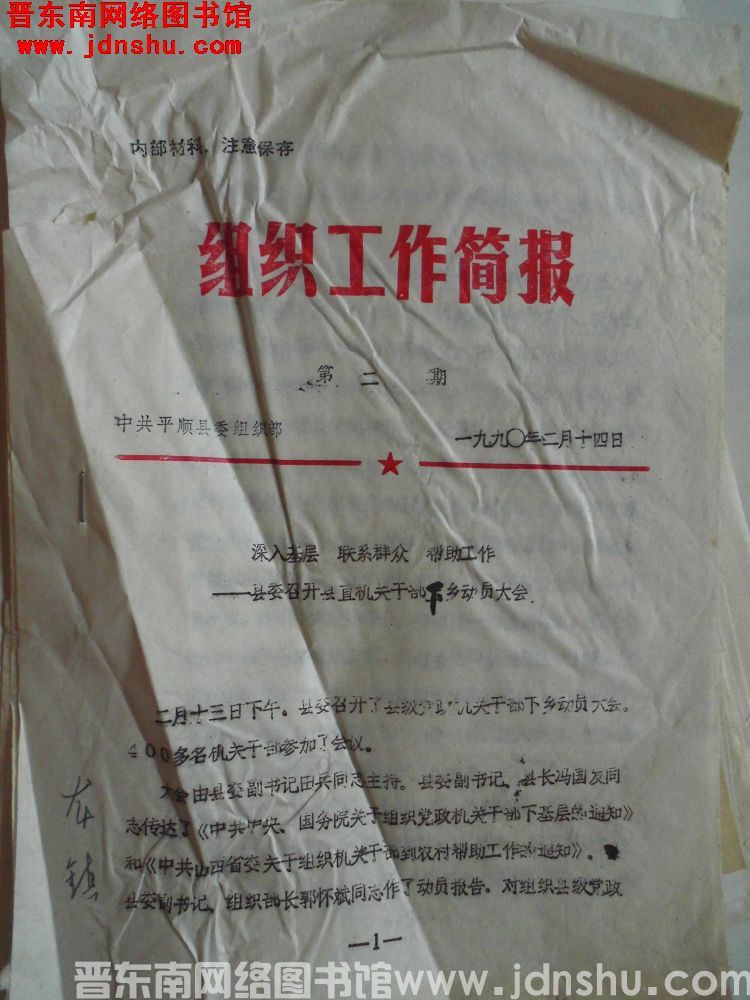 晋东南网络图书馆
www.jdnshu.com
内部材料，注意保存
组织工作简报
第二期
中共平顺县委组织部
一九九〇年二月十四日
深入基层 联系群众 帮助工作
——县委召开县直机关干部下乡动员大会
二月十三日下午。县委召开了县级党政机关干部下乡动员大会。
400多名机关干部参加了会议。
大会由县委副书记田兵同志主持。县委副书记、县长冯国发同
志传达了《中共中央、国务院关于组织党政机关干部下基层的通知》
和《中共山西省委关于组织机关干部到农村帮助工作的通知》。
县委副书记、组织部长郭怀斌同志作了动员报告。对组织县级党政
龙镇
—1—
晋东南网络图书馆www.jdnshu.com